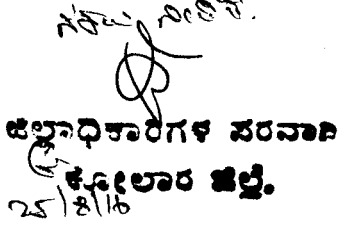 ಜಿಲ್ಲಾಧಿಕಾರಿಗಳ ಪರವಾಗಿ
ಕೋಲಾರ ಜಿಲ್ಲೆ.
25/8/16